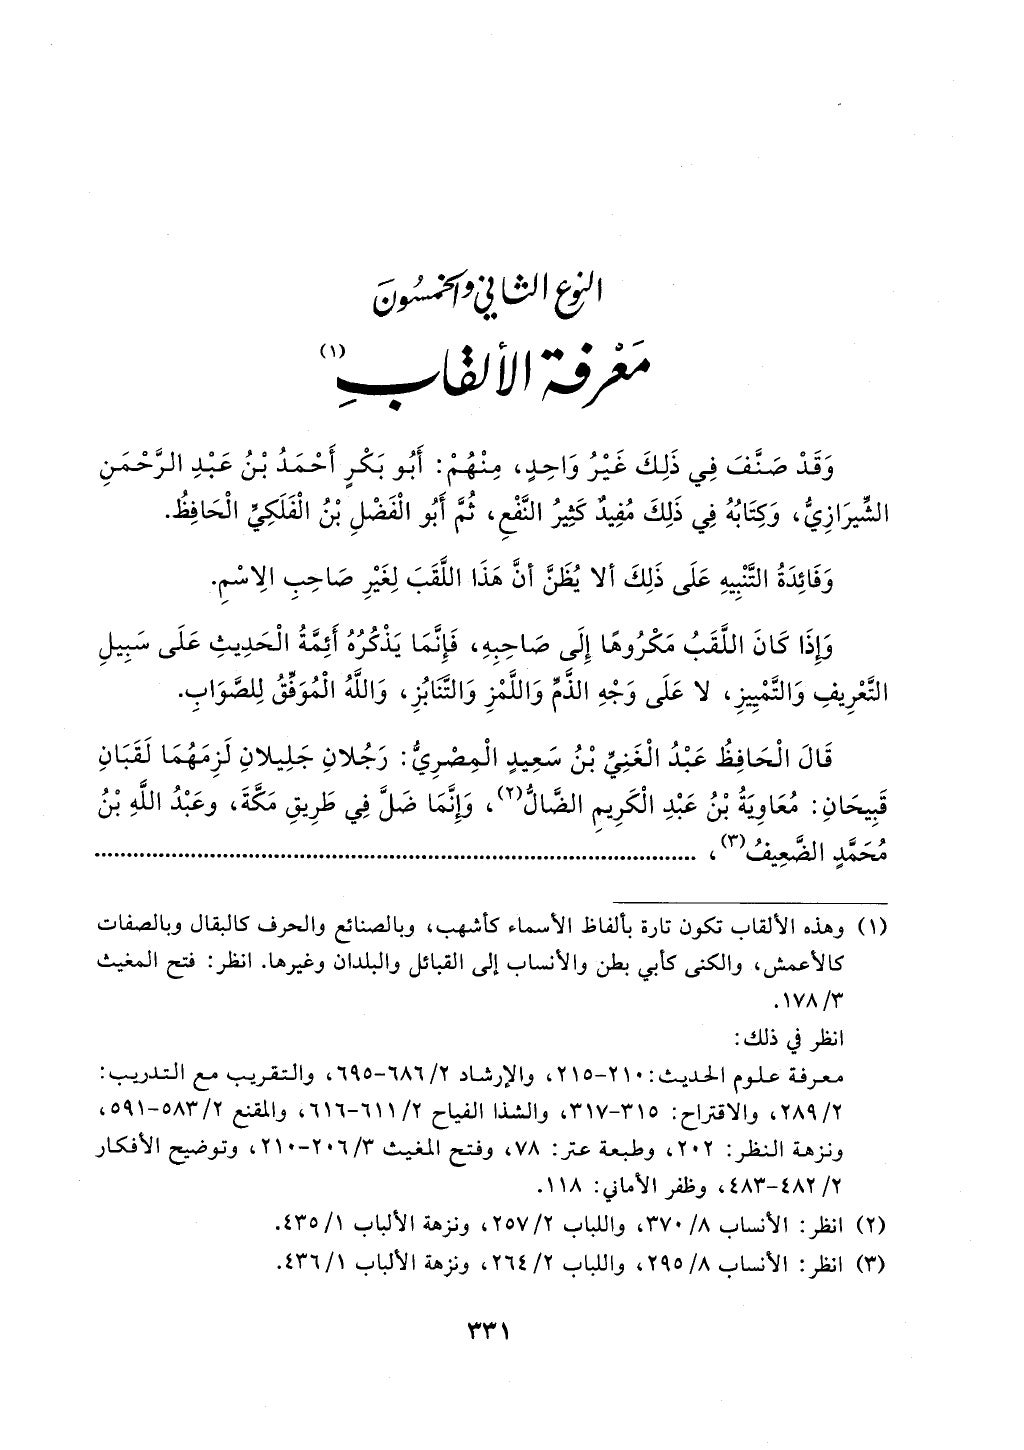 النوع الثاني والخمسون
مَعْرفة الألقابِ (١)
وَقَدْ صَنَّفَ فِي ذَلِكَ غَيْرُ وَاحِدٍ، مِنْهُمْ: أَبُو بَكْرٍ أَحْمَدُ بْنُ عَبْدِ الرَّحْمَنِ
الشِّيرَازِيُّ، وَكِتَابُهُ فِي ذَلِكَ مُفِيدٌ كَثِيرُ النَّفْعِ، ثُمَّ أَبُو الْفَضْلِ بْنُ الْفَلَكِيِّ الْحَافِظُ.
وَفَائِدَةُ التَّنْبِيهِ عَلَى ذَلِكَ ألا يُظَنَّ أنَّ هَذَا اللَّقَبَ لِغَيْرِ صَاحِبِ الِاسْمِ.
وَإِذَا كَانَ اللَّقَبُ مَكْرُوهًا إِلَى صَاحِبِهِ، فَإِنَّمَا يَذْكُرُهُ أَئِمَّةُ الْحَدِيثِ عَلَى سَبِيلِ
التَّعْرِيفِ وَالتَّمْيِيزِ، لا عَلَى وَجْهِ الذَّمِّ وَاللَّمْزِ وَالتَّنَابُزِ، وَاللَّهُ الْمُوَفِّقُ لِلصَّوَابِ.
قَالَ الْحَافِظُ عَبْدُ الْغَنِيِّ بْنُ سَعِيدٍ الْمِصْرِيُّ: رَجُلانِ جَلِيلانِ لَزِمَهُمَا لَقَبَانِ
قَبِيحَانِ: مُعَاوِيَةُ بْنُ عَبْدِ الْكَرِيمِ الضَّالُّ(٢)، وَإِنَّمَا ضَلَّ فِي طَرِيقِ مَكَّةَ، وعَبْدُ اللَّهِ بْنُ
مُحَمَّدٍ الضَّعِيفُ(٣)، ................................................
(١) وهذه الألقاب تكون تارة بألفاظ الأسماء كأشهب، وبالصنائع والحرف كالبقال وبالصفات
كالأعمش، والكنى كأبي بطن والأنساب إلى القبائل والبلدان وغيرها. انظر: فتح المغيث
٣/ ١٧٨.
انظر في ذلك:
معرفة علوم الحديث: ٢١٠-٢١٥، والإرشاد ٢/ ٦٨٦-٦٩٥، والتقريب مع التدريب:
٢/ ٢٨٩، والاقتراح: ٣١٥-٣١٧، والشذا الفياح ٢/ ٦١١-٦١٦، والمقنع ٢/ ٥٨٣-٥٩١،
ونزهة النظر: ٢٠٢، وطبعة عتر: ٧٨، وفتح المغيث ٣/ ٢٠٦-٢١٠، وتوضيح الأفكار
٢/ ٤٨٢-٤٨٣، وظفر الأماني: ١١٨.
(٢) انظر: الأنساب ٨/ ٣٧٠، واللباب ٢/ ٢٥٧، ونزهة الألباب ١/ ٤٣٥.
(٣) انظر: الأنساب ٨/ ٢٩٥، واللباب ٢/ ٢٦٤، ونزهة الألباب ١/ ٤٣٦.
٣٣١